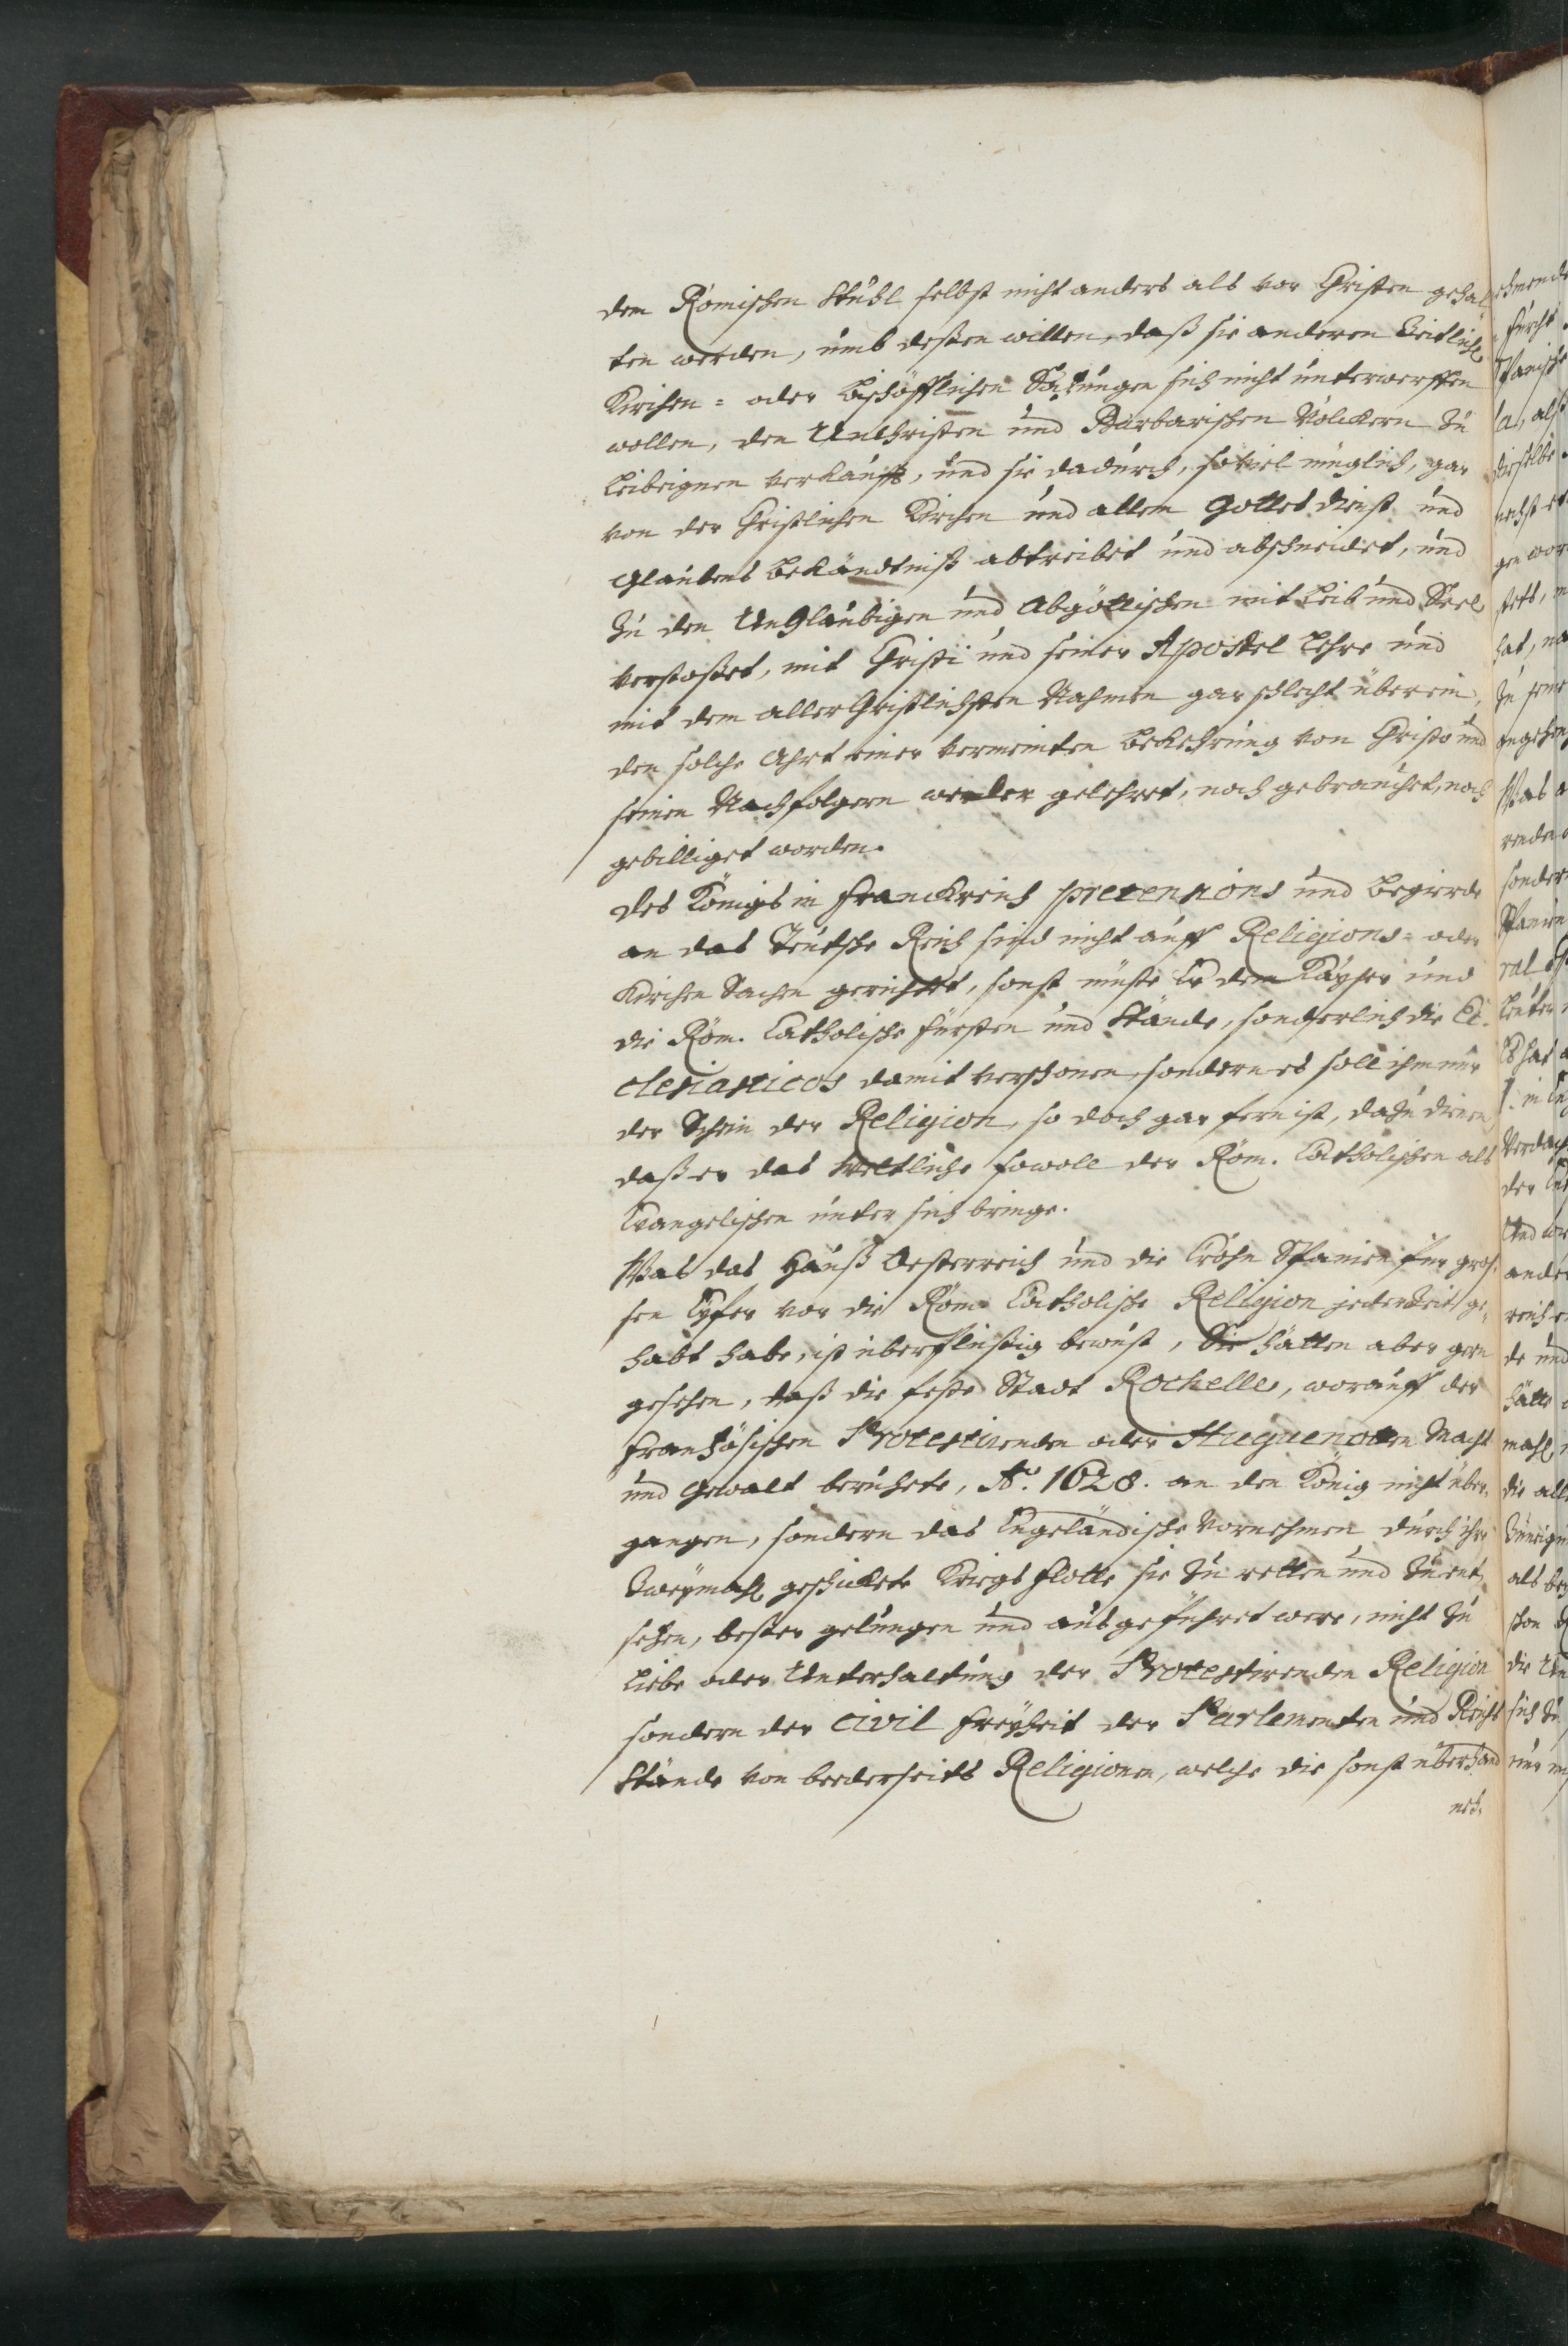 dem Römischen Stuhl selbst nicht anders als vor Christen gehal-
ten werden, umb deßen willen, daß sie anderen Zeitlich
Kirchen- oder Bischöfflichen Satzungen sich nicht unterwerffen
wollen, den UnChristen und Barbarischen Völckern zu
Leibeignen verkaufft, und sie dadurch, soviel müglich, gar
von der Christlichen Kirchen und allem Gottesdienst und
Glaubens Bekändtniß abtreibet und abschneidet, und
zu den UnGläubigen und Abgöttischen mit Leib und Seel
verstoßet, mit Christi und seiner Apostel Lehre und
mit dem aller Christlichsten Nahmen gar schlecht überein,
den solche Ahrt einer vermeinten Bekehrung von Christo und
seinen Nachfolgern weder gelehret, noch gebrauchet, noch
gebilliget worden.
Des Königs in Franckreich pretensions und Begierde
an das Teutsche Reich sind nicht auff Religions- oder
Kirchen Sachen gerichtet, sonst müste Er dem Kayser und
die Röm. Catholische Fürsten und Stände, sonderlich die Ec-
clesiasticos damit verschonen, sondern es soll ihm nur
der Schein der Religion, so doch gar fern ist, dazu dienen
daß er das Weltliche sowoll der Röm. Catholischen als
Evangelischen unter sich bringe.
Was das Hauß Oesterreich und die Crohn Spanien für gros-
sen Eyfer vor die Röm. Catholische Religion jederzeit ge-
habt habe, ist überflüßig bewust, Sie hätten aber gern
gesehen, daß die feste Stadt Rochelle, worauff der
Frantzösischen Protestirenden oder Huguenotten Macht
und Gewalt beruhete, Ao. 1628. an den König nicht über-
gangen, sondern das Engeländische Vornehmen durch ihre
Zweymahl geschickete Kriegs Flotte sie zu retten und zu ent-
setzen, besser gelungen und ausgeführet were, nicht zu
Liebe oder Unterhaltung der Protestirenden Religion
sondern der Civil Freyheit der Parlementen und Reichs
Stände von beederseits Religionen, welche die sonst überhand
neh-